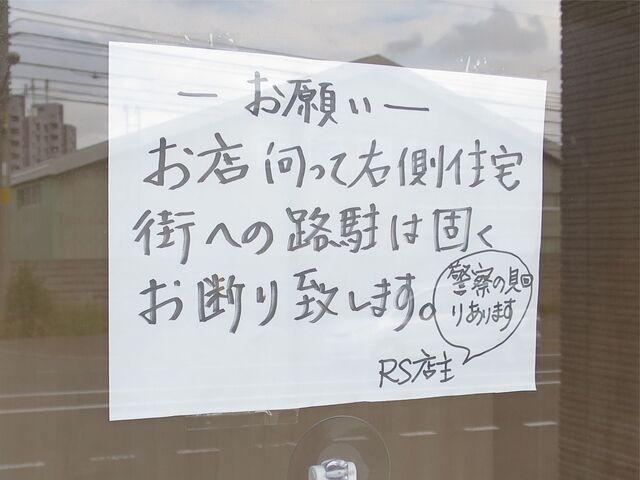 ーお願いー
お店向って右側住宅
街への路駐は固く
お断り致します。
警察の見回
りあります
RS店主